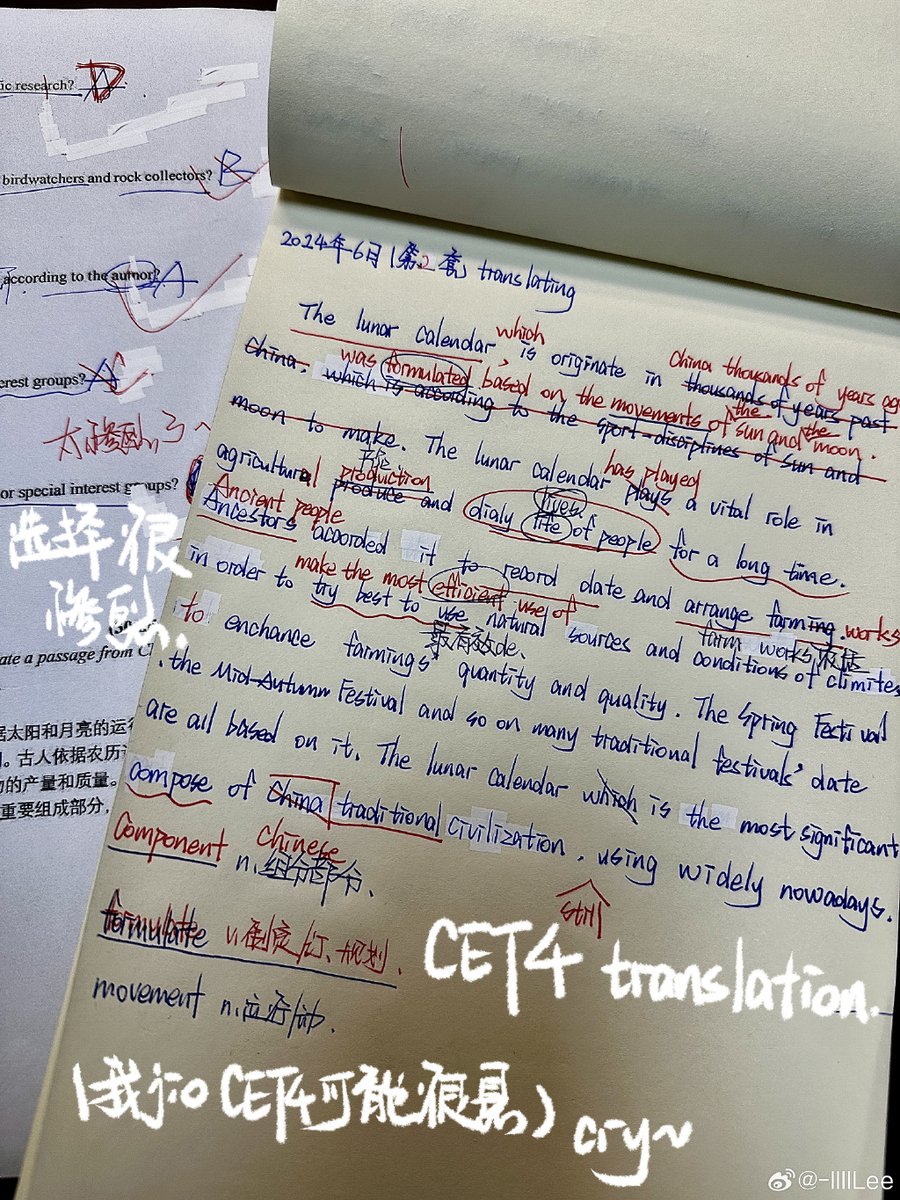 ic research? D
birdwatchers and rock collectors? B
according to the author? A
erest groups? A C
太惨烈了~
or special interest groups?
选择很
惨烈.
ate a passage from C
据太阳和月亮的运行
。古人依据农历
的产量和质量。
重要组成部分,
2024年6月(第2套) translating
The lunar calendar, which is originate in China thousands of years ago
thousands of years past
China. was formulated based on the movements of the sun and the moon.
which is according to the sport disciplines of sun and
moon to make. The lunar calendar has played plays a vital role in
agricultural production produce and dialy lives life of people for a long time.
Ancient people
Ancestors acoorded it to record date and arrange farming works
in order to make the most efficient use of
try best to use natural sources and conditions of climites
最有效de. farm works
to enchance farmings' quantity and quality. The Spring Festival
, the Mid-Autumn Festival and so on many traditional festivals' date
are all based on it. The lunar calendar which is the most significant
compose of China traditional civilization, using widely nowadays.
Chinese
still
component n.组合部分.
formulatte v.制定/订、规划.
movement n.运行/动.
CET4 translation.
(我de CET4可能很悬)
cry~
@-lIIIILee